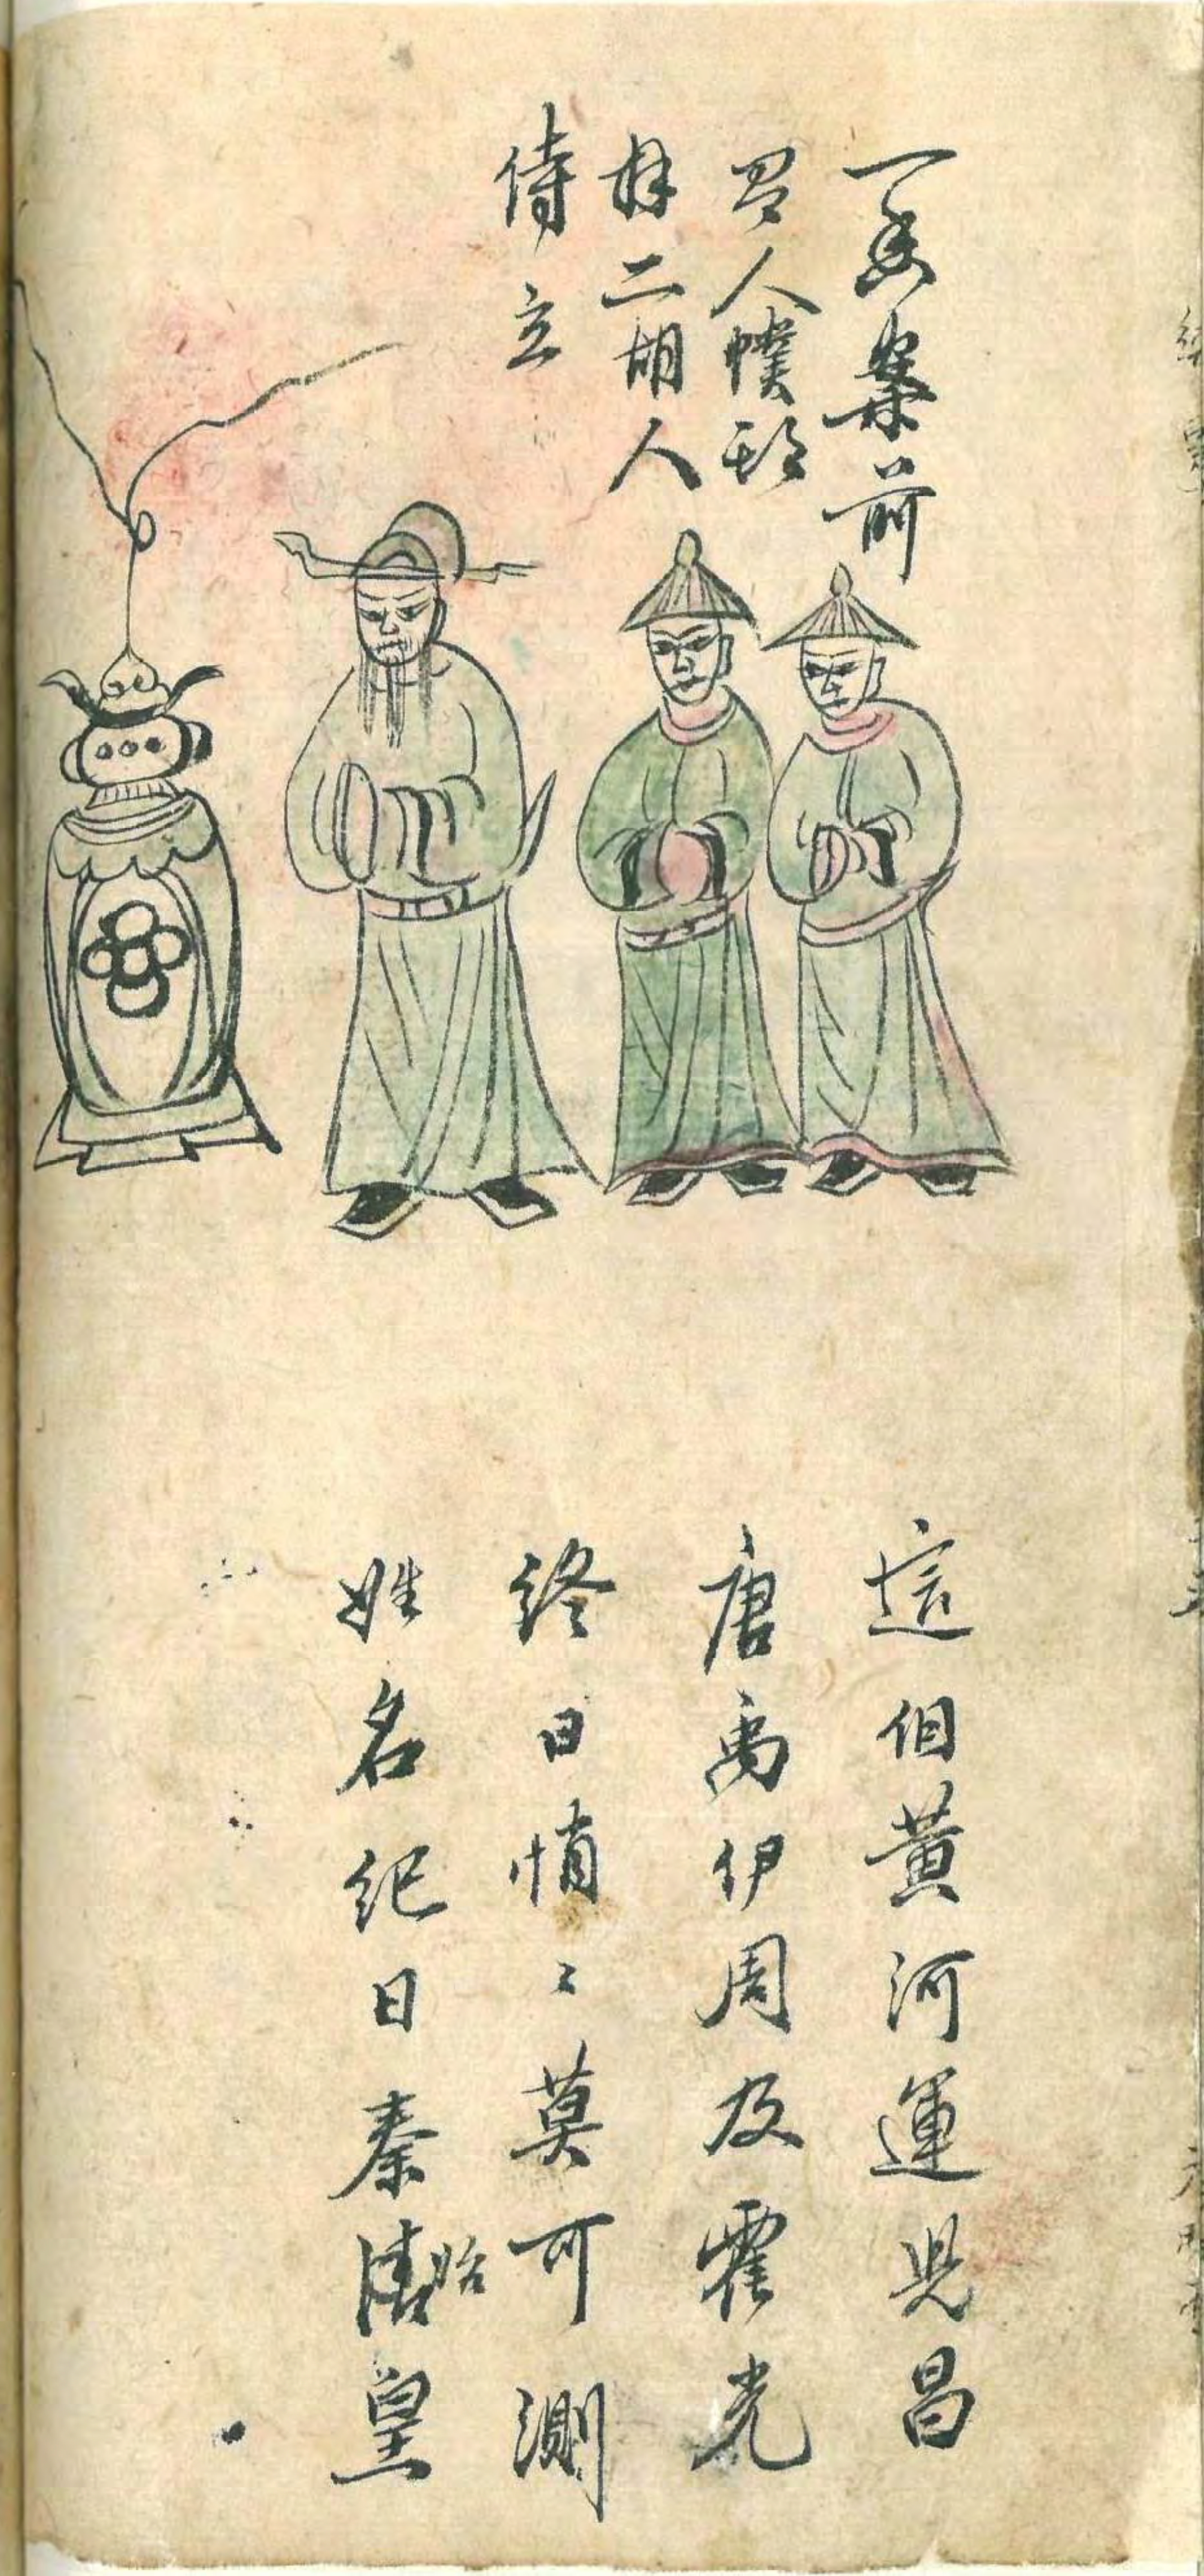 一香案前
四人幞頭
冠二胡人
侍立
這個黃河運兆昌
唐禹伊周及霍光
終日悄〻莫可測
姓名紀日秦始皇